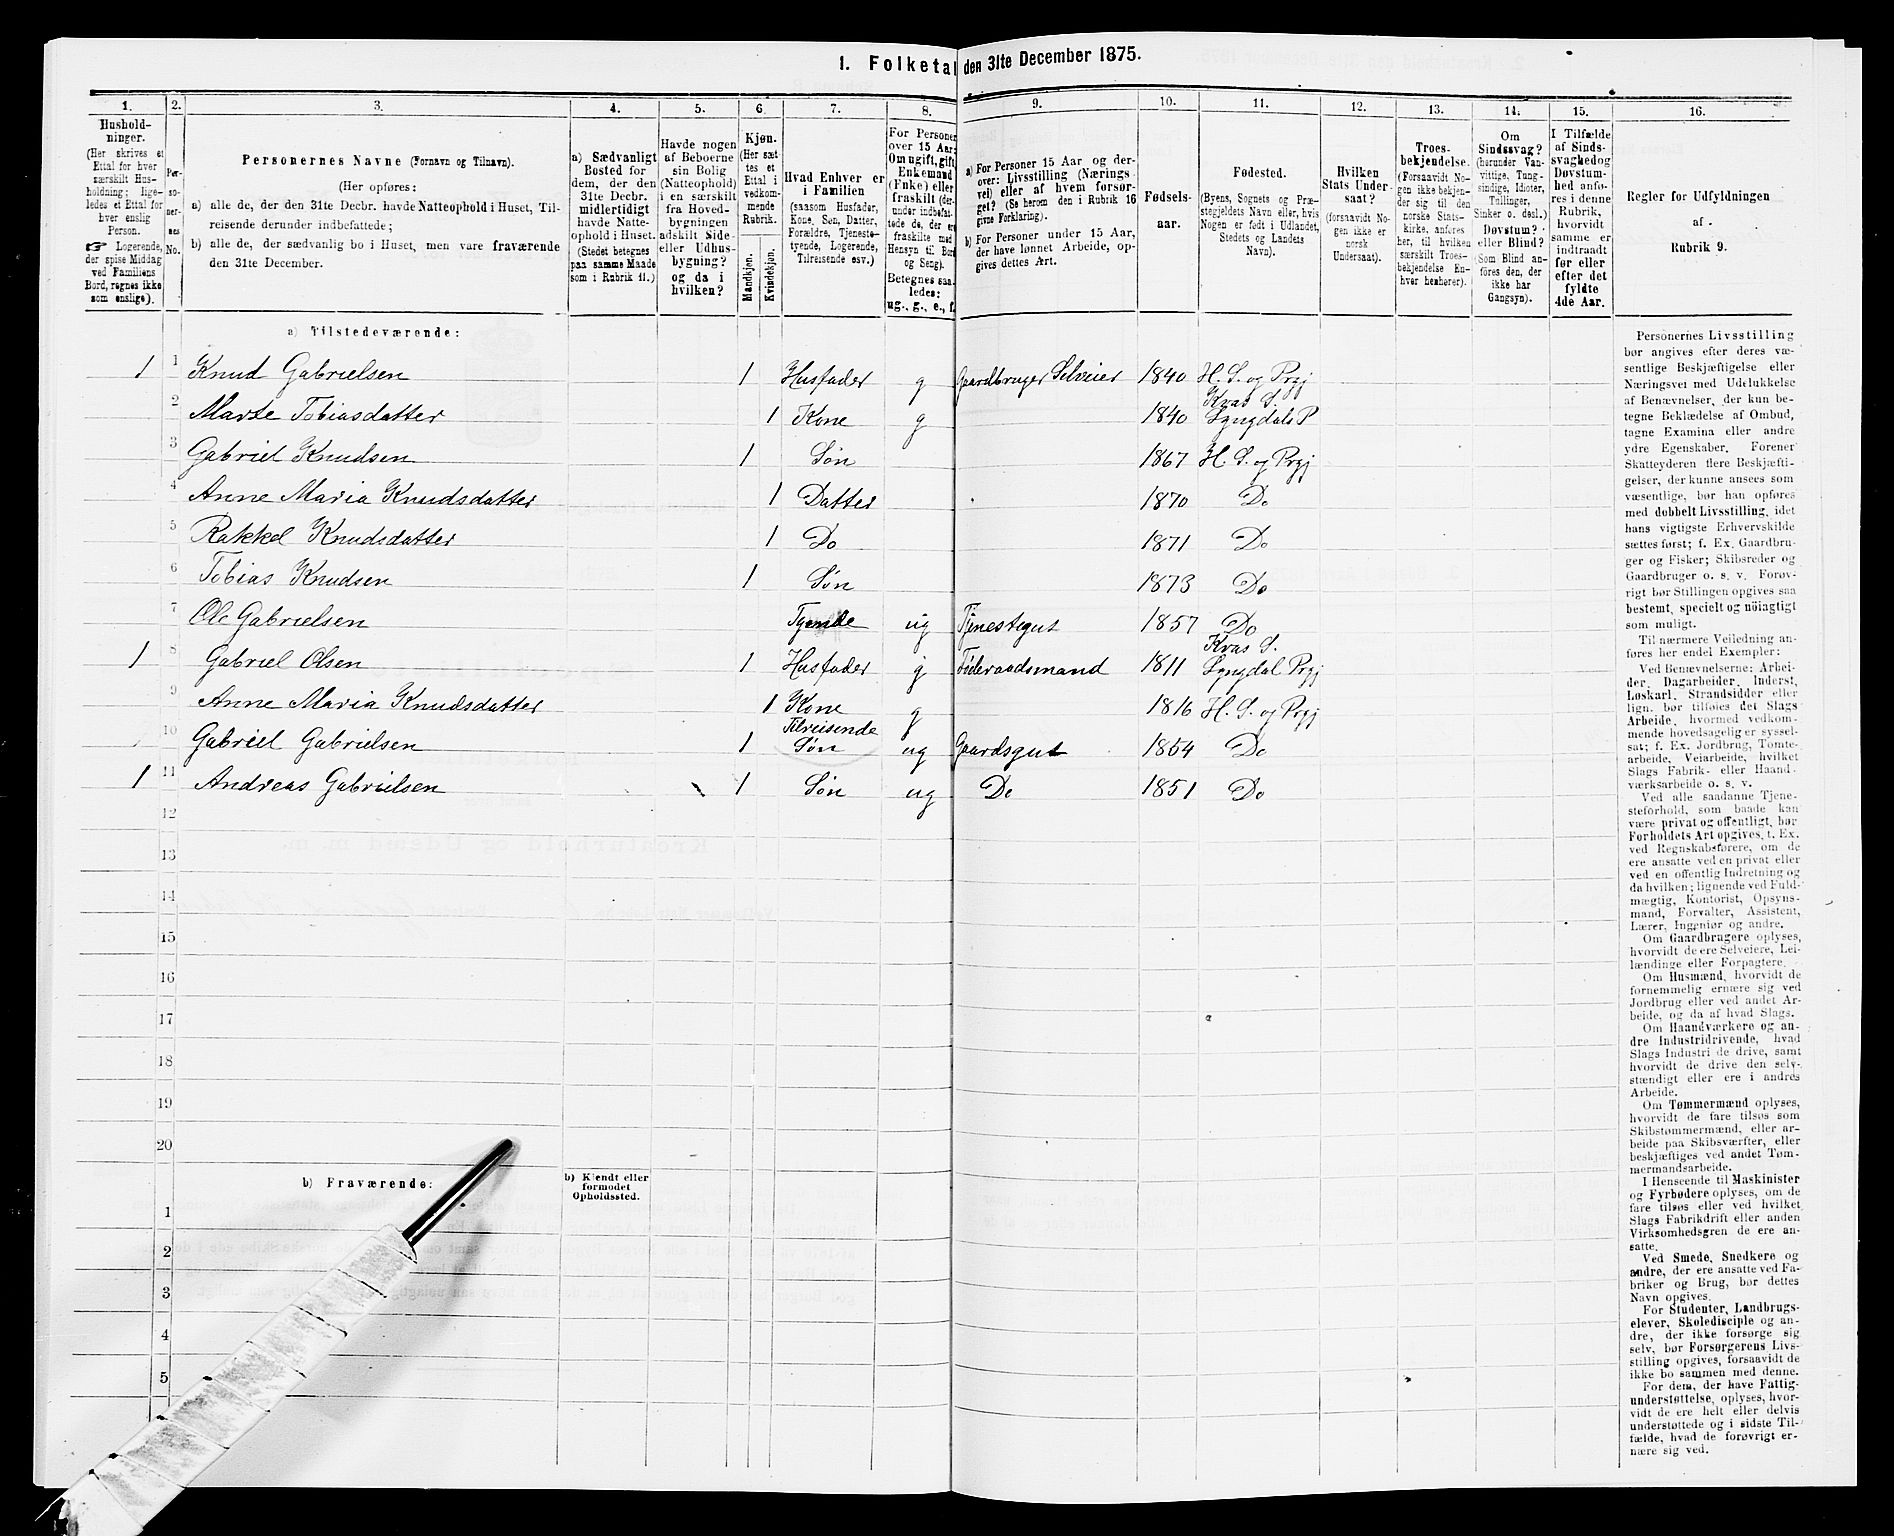 1. Folketal den 31te December 1875.
1. 2. 3. 4. 5. 6. 7. 8. 9. 10. 11. 12. 13. 14. 15. 16.
Hushold-
ninger.
(Her skrives et
Ettal for hver
særskilt Hus-
holdning; lige-
ledes et Ettal for
hver enslig
Person.
☞ Logerende,
der spise Middag
ved Familiens
Bord, regnes ikke
som enslige).
Per-
so-
ner-
nes
No.
Personernes Navne (Fornavn og Tilnavn).
(Her opføres:
a) alle de, der den 31te Decbr. havde Natteophold i Huset, Til-
reisende derunder indbefattede;
b) alle de, der sædvanlig bo i Huset, men vare fraværende
den 31te December.
a) Sædvanligt
Bosted for
dem, der den
31te Decbr.
midlertidigt
havde Natte-
ophold i Huset.
(Stedet betegnes
paa samme Maade
som i Rubrik 11.)
Havde nogen
af Beboerne
sin Bolig
(Natteophold)
i en særskilt
fra Hoved-
bygningen
adskilt Side-
eller Udhus-
bygning?
og da i
hvilken?
Kjøn.
(Her sæt-
tes et
Ettal i
vedkom-
mende
Rubrik.
Mandkjøn.
Kvindekjøn.
Hvad Enhver er
i Familien
(saasom Husfader,
Kone, Søn, Datter,
Forældre, Tjeneste-
tyende, Logerende,
Tilreisende osv.)
For Personer
over 15 Aar:
Om ugift, gift,
Enkemand
(Enke) eller
fraskilt (der-
under indbefat-
tede de, der ere
fraskilte med
Hensyn til Bord
og Seng).
Betegnes saa-
ledes:
ug., g., e., f.
a) For Personer 15 Aar og der-
over: Livsstilling (Nærings
vei) eller af hvem forsør-
get? (Se herom den i Rubrik 16
givne Forklaring).
b) For Personer under 15 Aar,
der have lønnet Arbeide, op-
gives dettes Art.
Fødsels-
aar.
Fødested.
(Byens, Sognets og Præ-
stegjeldets Navn eller, hvis
Nogen er født i Udlandet,
Stedets og Landets
Navn).
Hvilken
Stats Under-
saat?
(forsaavidt No-
gen ikke er
norsk
Undersaat).
Troes-
bekjendelse.
(Forsaavidt No-
gen ikke bekjen-
der sig til den
norske Stats-
kirke, anføres
her, til hvilken
særskilt Troes-
bekjendelse En-
hver henhører).
Om
Sindssvag?
(herunder Van-
vittige, Tung-
sindige, Idioter,
Tillinger,
Sinker o. desl.)
Døvstum?
eller Blind?
(Som Blind an-
føres den, der
ikke har
Gangsyn).
I Tilfælde
af Sinds-
svaghed og
Døvstum-
hed anfø-
res i denne
Rubrik,
hvorvidt
samme er
indtraadt
før eller
efter det
fyldte
4de Aar.
Regler for Udfyldningen
af
Rubrik 9.
a) Tilstedeværende:
1 1 Knud Gabrielsen 1 Husfader g Gaardbruger Selveier 1840 H. S. og Prgj
2 Marte Tobiasdatter 1 Kone g 1840 Kvas S. Lyngdals P
3 Gabriel Knudsen 1 Søn 1867 H. S. og Prgj
4 Anne Maria Knudsdatter 1 Datter 1870 Do
5 Rakkel Knudsdatter 1 Do 1871 Do
6 Tobias Knudsen 1 Søn 1873 Do
7 Ole Gabrielsen Tyende ug Tjenestegut 1857 Do
1 8 Gabriel Olsen 1 Husfader g Føderaadsmand 1811 Kvas S. Lyngdal Prgj
9 Anne Maria Knudsdatter 1 Kone g 1816 H. S. og Prgj
10 Gabriel Gabrielsen 1 Tilreisende Søn ug Gaardsgut 1854 Do
1 11 Andreas Gabrielsen 1 Søn ug Do 1851 Do
12
13
14
15
16
17
18
19
20
b) Fraværende:
b) Kjendt eller
formodet
Opholdssted.
1
2
3
4
5
Personernes Livsstilling
bør angives efter deres væ-
sentlige Beskjæftigelse eller
Næringsvei med Udelukkelse
af Benævnelser, der kun be-
tegne Beklædelse af Ombud,
tagne Examina eller andre
ydre Egenskaber. Forener
Skatteyderen flere Beskjæfti-
gelser, der kunne ansees som
væsentlige, bør han opføres
med dobbelt Livsstilling, idet
hans vigtigste Erhvervskilde
sættes først; f. Ex. Gaardbru-
ger og Fisker; Skibsreder og
Gaardbruger o. s. v. Forøv-
rigt bør Stillingen opgives saa
bestemt, specielt og nöiagtigt
som muligt.
Til nærmere Veiledning an-
føres her endel Exempler:
Ved Benævnelserne: Arbei-
der, Dagarbeider, Inderst,
Løskarl, Strandsidder eller
lign. bør tilføies det Slags
Arbeide, hvormed vedkom-
mende hovedsagelig er syssel-
sat; f. Ex. Jordbrug, Tomte-
arbeide, Veiarbeide, hvilket
Slags Fabrik- eller Haand-
værksarbeide o. s. v.
Ved alle saadanne Tjene-
steforhold, som baade kan
være privat og offentligt, bør
Forholdets Art opgives, t. Ex.
ved Regnskabsførere, om de
ere ansatte ved en privat eller
ved en offentlig Indretning og
da hvilken; lignende ved Fuld-
mægtig, Kontorist, Opsyns-
mand, Forvalter, Assistent,
Lærer, Ingeniør og andre.
Om Gaardbrugere oplyses,
hvorvidt de ere Selveiere, Lei-
lændinge eller Forpagtere.
Om Husmænd, hvorvidt de
fornemmelig ernære sig ved
Jordbrug eller ved andet Ar-
beide, og da af hvad Slags.
Om Haandværkere og an-
dre Industridrivende, hvad
Slags Industri de drive, samt
hvorvidt de drive den selv-
stændigt eller ere i andres
Arbeide.
Om Tømmermænd oplyses,
hvorvidt de fare tilsøs som
Skibstømmermænd, eller ar-
beide paa Skibsværfter, eller
beskjæftiges ved andet Tøm-
mermandsarbeide.
I Henseende til Maskinister
og Fyrbødere oplyses, om de
fare tilsøs eller ved hvilket
Slags Fabrikdrift eller anden
Virksomhedsgren de ere an-
satte.
Ved Smede, Snedkere og
andre, der ere ansatte ved Fa-
briker og Brug, bør dettes
Navn opgives.
For Studenter, Landbrugs-
elever, Skoledisciple og an-
dre, der ikke forsørge sig
selv, bør Forsørgerens Livs-
stilling opgives, forsaavidt de
ikke bo sammen med denne.
For dem, der have Fattig-
understøttelse, oplyses, hvor-
vidt de ere helt eller delvis
understøttede og i sidste Til-
fælde, hvad de forøvrigt er-
nære sig ved.